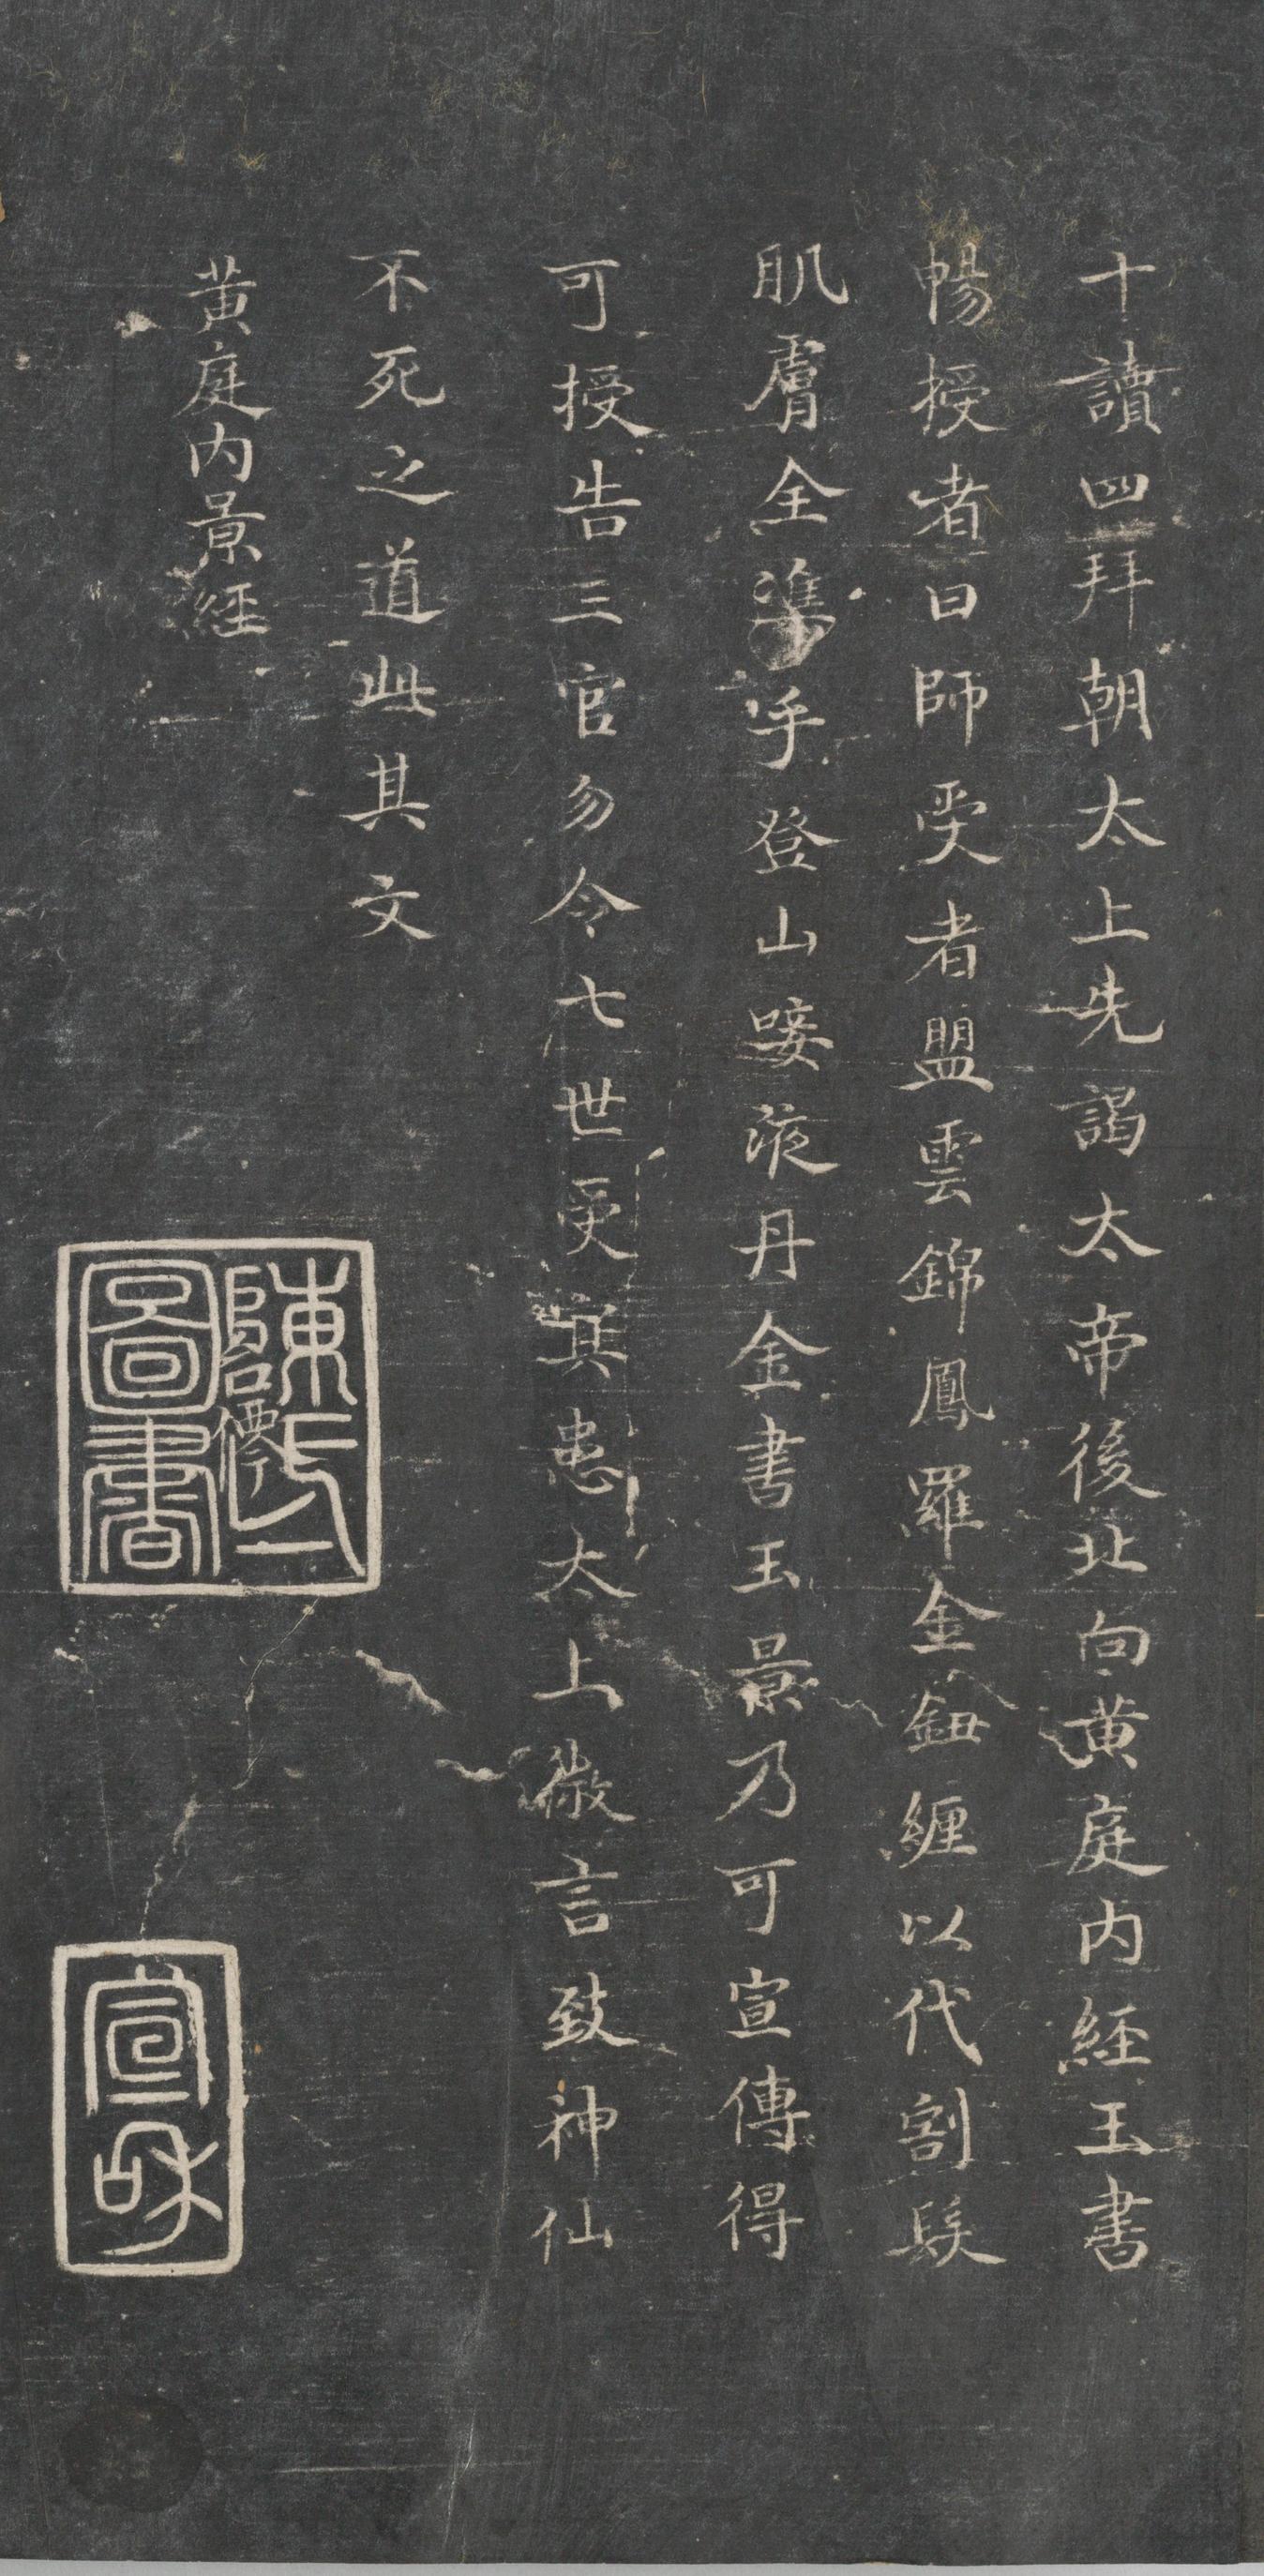 十讀四拜朝太上先謁太帝後北向黃庭內經玉書
暢授者曰師受者盟雲錦鳳羅金鈕纏以代割髮
肌膚全準乎登山唼液丹金書玉景乃可宣傳得
可授告三官勿令七世受冥患太上微言致神仙
不死之道此其文
黃庭內景經
陳氏圖書
宣和